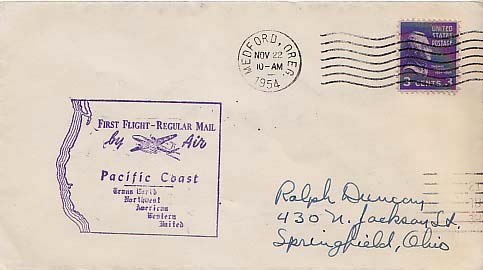 MEDFORD, OREG.
NOV 22
10-AM
1954
UNITED
STATES
POSTAGE
3 CENTS 3
FIRST FLIGHT-REGULAR MAIL
by Air
Pacific Coast
Trans World
Northwest
American
Western
United
Ralph Duncan
430 N. Jackson St.
Springfield, Ohio